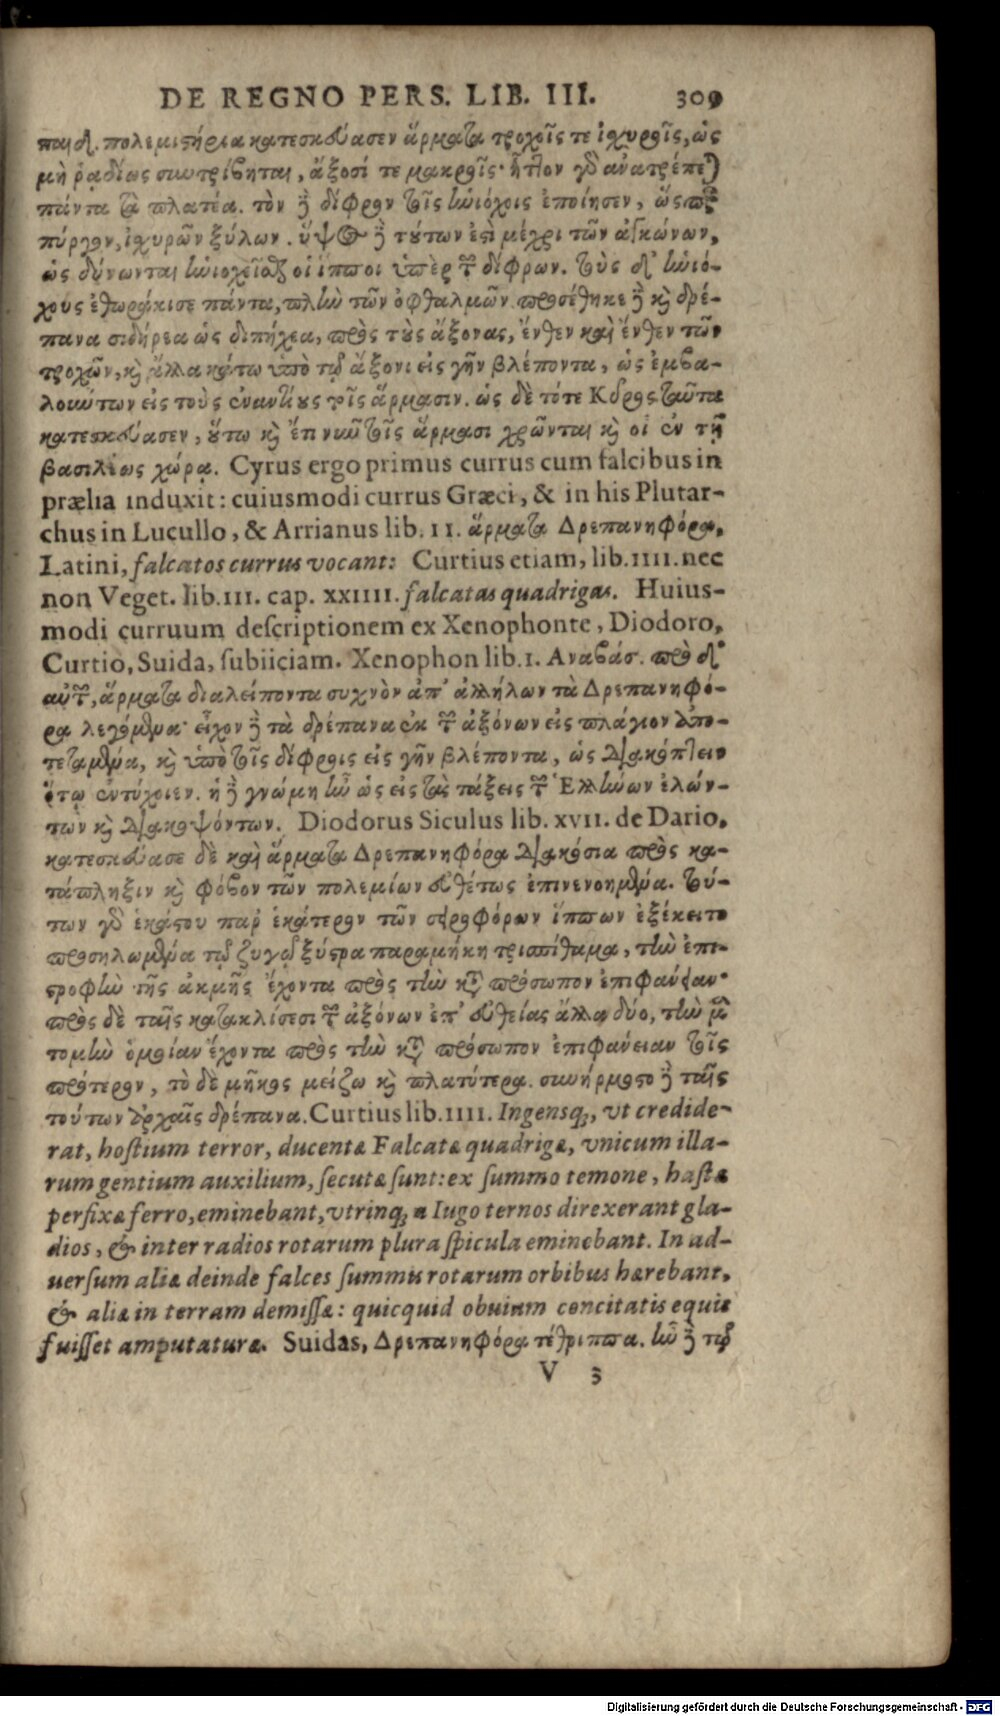 DE REGNO PERS. LIB. III. 309
πολεμιστήρια κατεσκεύασεν ἅρματα τροχοῖς τε ἰχυροῖς, ὡς
μὴ ῥαδίως συντρίβηται, ἄξοσί τε μακροῖς· ἧττον γὸ ἀνατρέπεται
πάντα τὰ πλατέα. τὸν δὲ δίφρον τοῖς ἡνιόχοις ἐποίησεν, ὥσπερ
πύργον, ἰχυρῶν ξύλων. ὕψος δὲ τούτων ἐστὶ μέχρι τῶν ἀγκώνων,
ὡς δύνωνται ἡνιοχεῖσθαι οἱ ἵπποι ὑπὲρ τῶν δίφρων. τοὺς δ' ἡνιό-
χους ἐθωράκισε πάντα, πλὴν τῶν ὀφθαλμῶν. προσέθηκε δὲ καὶ δρέ-
πανα σιδήρεα ὡς διπήχεα, πρὸς τοὺς ἄξονας, ἔνθεν καὶ ἔνθεν τῶν
τροχῶν, καὶ ἄλλα κάτω ὑπὸ τῷ ἄξονι εἰς γῆν βλέποντα, ὡς ἐμβα-
λούντων εἰς τοὺς ἐναντίους τοῖς ἅρμασιν. ὡς δὲ τότε Κῦρος ταῦτα
κατεσκεύασεν, οὕτω καὶ ἔτι νῦν τοῖς ἅρμασι χρῶνται καὶ οἱ ἐν τῇ
βασιλέως χώρᾳ. Cyrus ergo primus currus cum falcibus in
prælia induxit: cuiusmodi currus Græci, & in his Plutar-
chus in Lucullo, & Arrianus lib. II. ἅρματα Δρεπανηφόρα,
Latini, falcatos currus vocant: Curtius etiam, lib. IIII. nec
non Veget. lib. III. cap. XXIIII. falcatas quadrigas. Huius-
modi curruum descriptionem ex Xenophonte, Diodoro,
Curtio, Suida, subiiciam. Xenophon lib. I. Αναβάσ. πρὸ δ'
αὐτῶν, ἅρματα διαλείποντα συχνὸν ἀπ' ἀλλήλων τὰ Δρεπανηφό-
ρα λεγόμενα· εἶχον δὲ τὰ δρέπανα ἐκ τῶν ἀξόνων εἰς πλάγιον ἀπο-
τεταμένα, καὶ ὑπὸ τοῖς δίφροις εἰς γῆν βλέποντα, ὡς διακόπτειν
ὅτῳ ἐντύχοιεν. ἡ δὲ γνώμη ἦν ὡς εἰς τὰς τάξεις τῶν Ἑλλήνων ἐλών-
των καὶ διακοψόντων. Diodorus Siculus lib. XVII. de Dario,
κατεσκεύασε δὲ καὶ ἅρματα Δρεπανηφόρα διακόσια πρὸς κα-
τάπληξιν καὶ φόβον τῶν πολεμίων εὐθέτως ἐπινενοημένα. τού-
των γὸ ἑκάστου παρ' ἑκάτερον τῶν σειροφόρων ἵππων ἐξέκειτο
προσηλωμένα τῷ ζυγῷ ξύστρα παραμήκη τρισπίθαμα, τὴν ἐπι-
στροφὴν τῆς ἀκμῆς ἔχοντα πρὸς τὴν κατὰ πρόσωπον ἐπιφάνειαν·
πρὸς δὲ ταῖς κατακλίσεσι τῶν ἀξόνων ἐπ' εὐθείας ἄλλα δύο, τὴν μὲν
τομὴν ὁμοίαν ἔχοντα πρὸς τὴν κατὰ πρόσωπον ἐπιφάνειαν τοῖς
πρότερον, τὸ δὲ μῆκος μείζω καὶ πλατύτερα. συνήρμοστο δὲ ταῖς
τούτων ἀρχαῖς δρέπανα. Curtius lib. IIII. Ingensq́;, vt credide-
rat, hostium terror, ducentæ Falcatæ quadrigæ, vnicum illa-
rum gentium auxilium, secutæ sunt: ex summo temone, hastæ
perfixæ ferro, eminebant, vtrinq́; a Iugo ternos direxerant gla-
dios, & inter radios rotarum plura spicula eminebant. In ad-
uersum aliæ deinde falces summis rotarum orbibus hærebant,
& aliæ in terram demissæ: quicquid obuium concitatis equis
fuisset amputaturæ. Suidas, Δρεπανηφόρα τέθριππα. ἦν δὲ τῷ
V 3
Digitalisierung gefördert durch die Deutsche Forschungsgemeinschaft - DFG